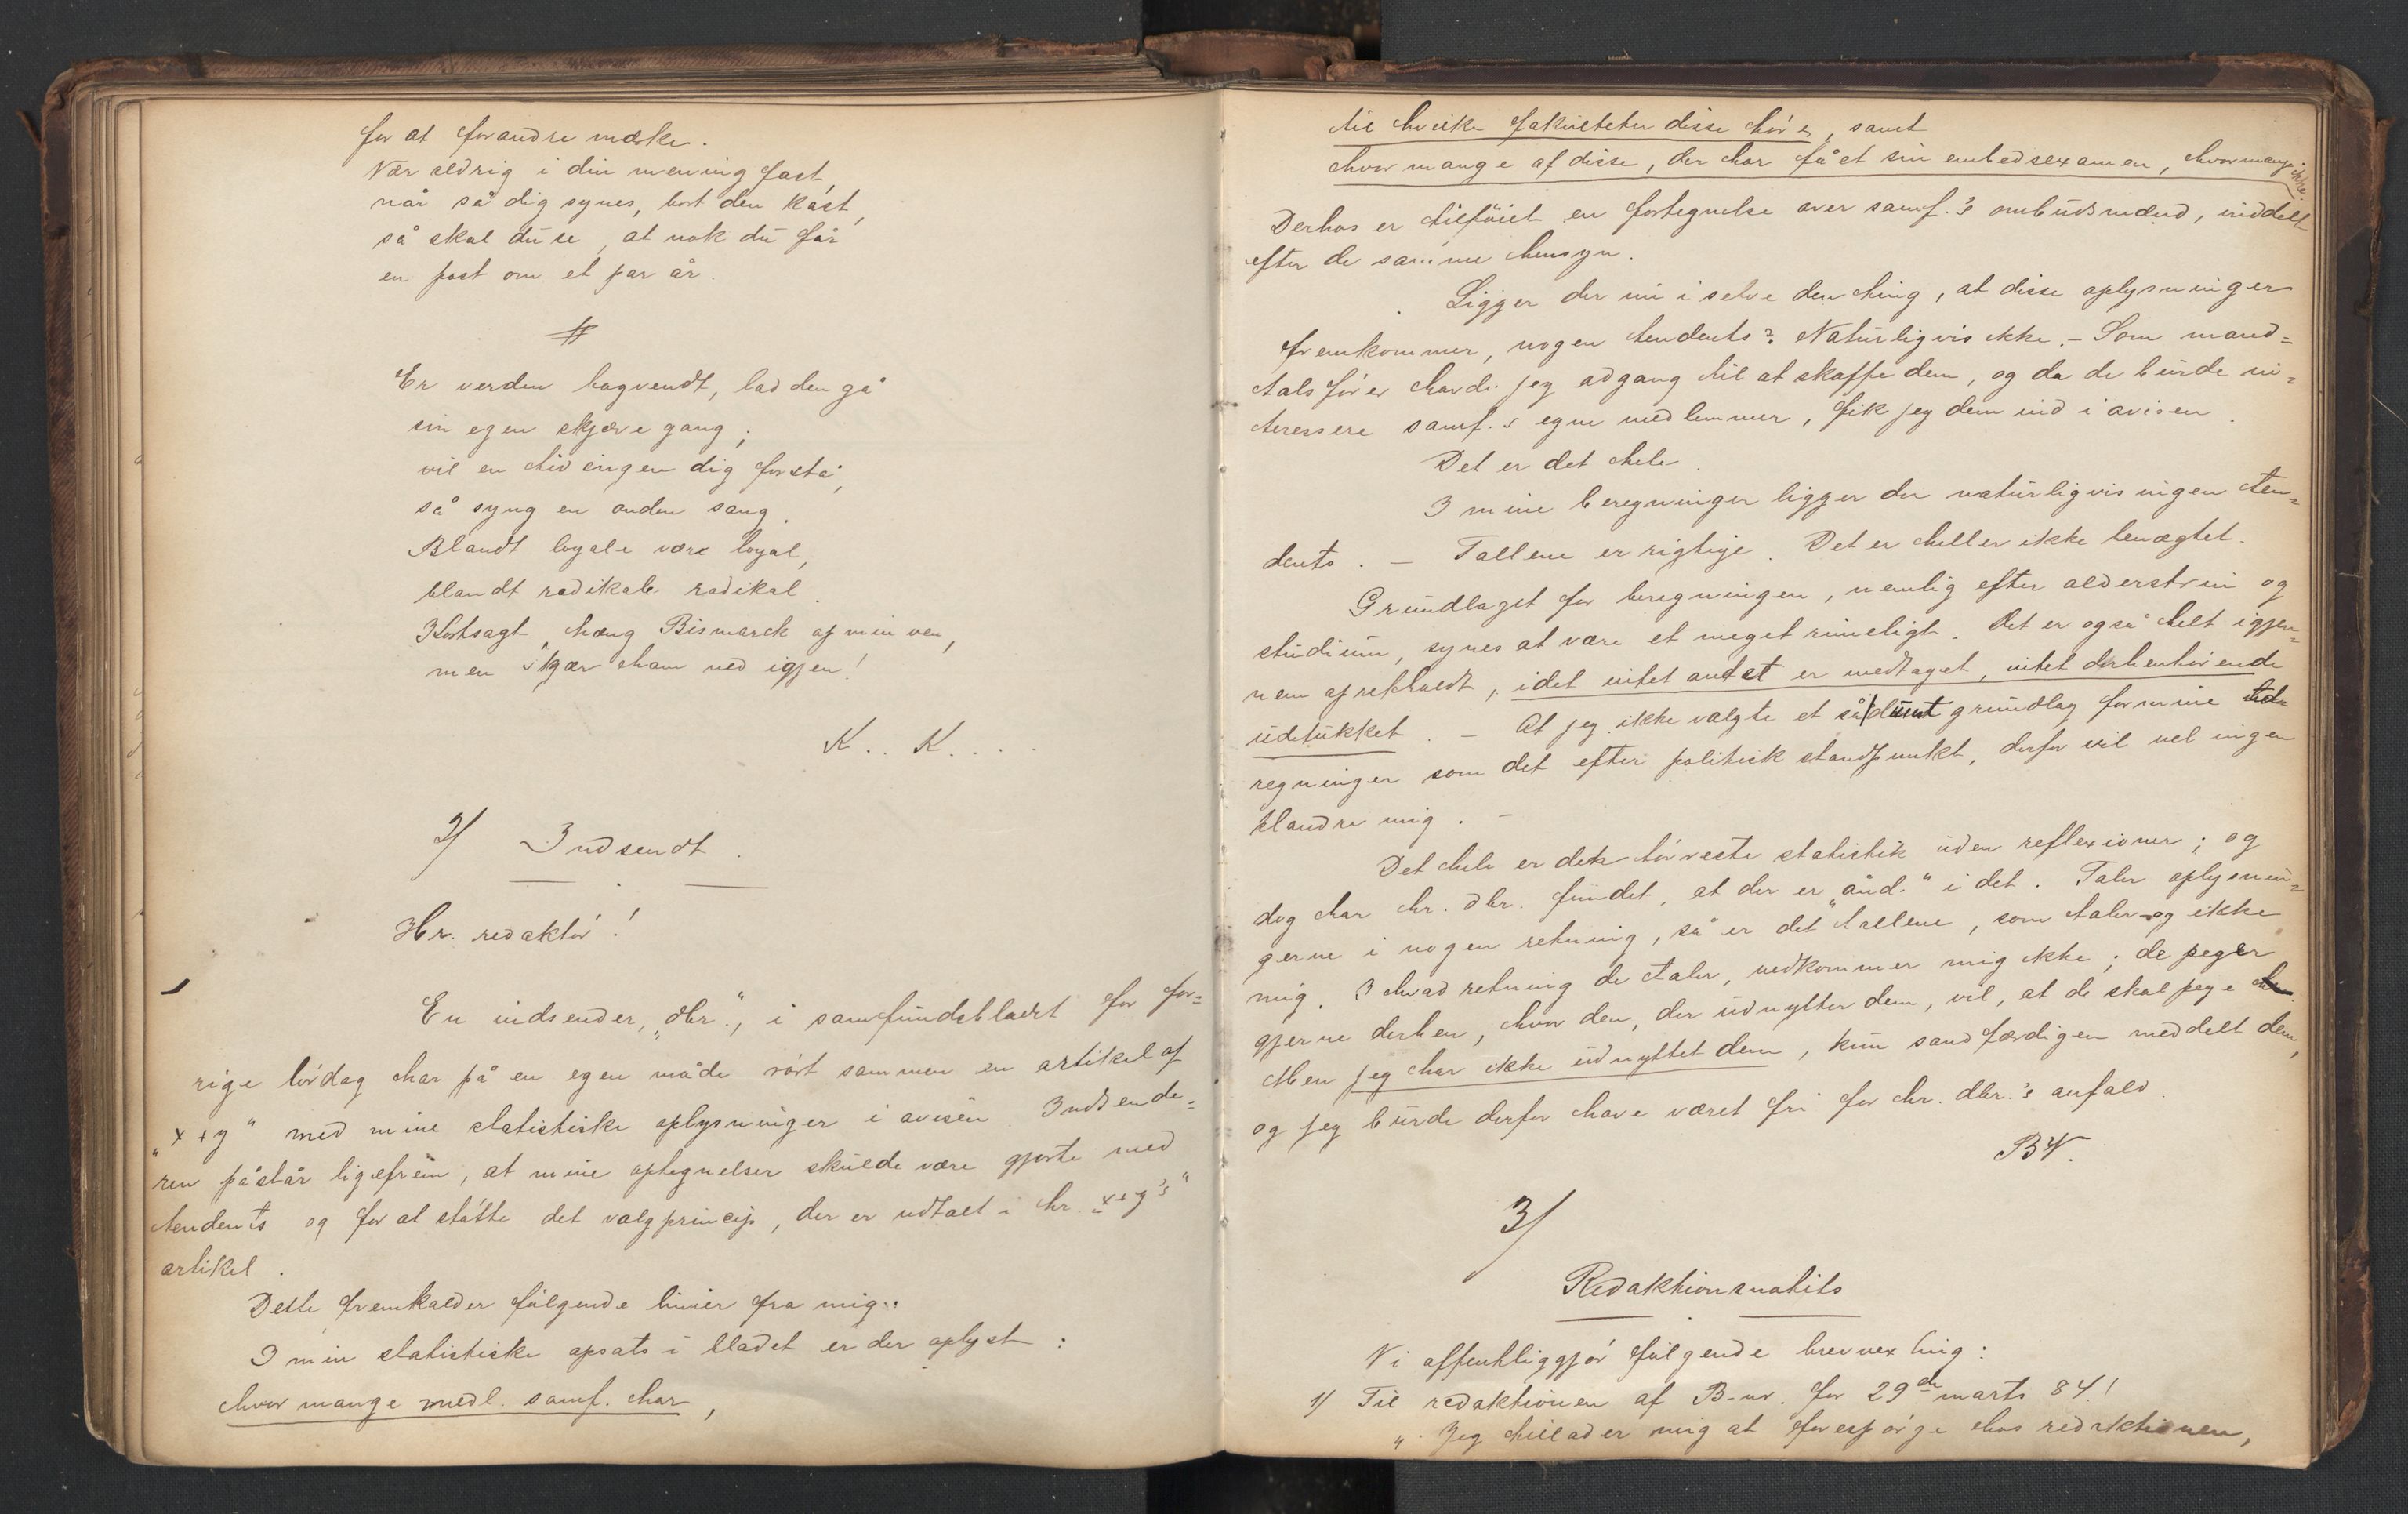 for at forandre mærke.
Vær aldrig i din mening fast,
når så dig synes, bort den kast,
så skal du se, at nok du får
en post om et par år.
#
Er verden bagvendt, lad den gå
sin egen skjæve gang;
vil en tid ingen dig forstå,
så syng en anden sang.
Blandt loyale være loyal,
blandt radikale radikal.
Kortsagt, hæng Bismarck op min ven,
men skjær ham ned igjen!
K.. K....
2/ Indsendt.
Hr. redaktør!
En indsender, „dbr.", i samfundsbladet for for=
rige lørdag har på en egen måde rørt sammen en artikel af
„x+y" med mine statistiske oplysninger i avisen. Indsende=
ren påstår ligefrem, at mine optegnelser skulde være gjorte med
tendents og for at støtte det valgprincip, der er udtalt i hr. „x+y's"
artikel.
Dette fremkalder følgende linier fra mig:
I min statistiske opsats i bladet er der oplyst:
hvor mange medl. samf. har,
til hvilke fakulteter disse hører, samt
hvor mange af disse, der har fået sin embedsexamen, hvormange ikke.
Derhos er tilføiet en fortegnelse over samf.'s ombudsmænd, inddelt
efter de samme hensyn.
Ligger der nu i selve den ting, at disse oplysninger
fremkommer, nogen tendents? Naturligvis ikke. – Som mand=
talsfører havde jeg adgang til at skaffe dem, og da de burde in=
teressere samf.s egne medlemmer, fik jeg dem ind i avisen.
Det er det hele.
I mine beregninger ligger der naturligvis ingen ten=
dents. – Tallene er rigtige. Det er heller ikke benægtet.
Grundlaget for beregningen, nemlig efter alderstrin og
studium, synes at være et meget rimeligt. Det er også helt igjen=
nem opretholdt, idet intet andet er medtaget, intet derhenhørende
udelukket. – At jeg ikke valgte et sådant grundlag for mine
regninger som det efter politisk standpunkt, derfor vil vel ingen
klandre mig. –
Det hele er den tørreste statistik uden reflexioner; og
dog har hr. dbr. fundet, at der er „ånd" i det. Taler oplysnin=
gerne i nogen retning, så er det tallene, som taler og ikke
mig. I hvad retning de taler, vedkommer mig ikke; de peger
gjerne derhen, hvor den, der udnytter dem, vil, at de skal pege
Men jeg har ikke udnyttet dem, kun sandfærdigen meddelt dem,
og jeg burde derfor have været fri for hr. dbr.'s anfald.
BV.
3/
Redaktionsnotits
Vi offentliggjør følgende brevvexling:
1/ Til redaktionen af B-nr. for 29de marts 84!
„Jeg tillader mig at forespørge hos redaktionen,